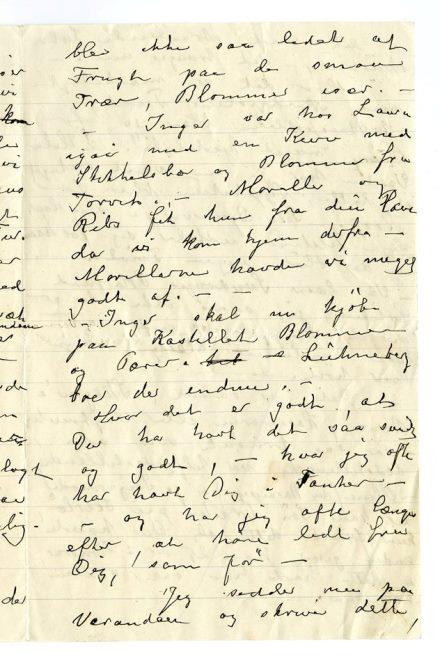 blev ikke saa ledet af
Frugt paa de smaa
Træer, Blommer især. –
– Inger var hos Laura
igaar med en Kurv med
Stikkelsbær og Blommer fra
Torvet. – Moreller og
Ribs fik hun fra din Have
da vi kom hjem derfra –
Morellerne havde vi meget
godt af. – –
– Inger skal nu kjøbe
paa Kastellet Blommer
og Pærer.
boe der endnu. –
Hvor det er godt, at
Du har havt det saa
og godt, – hvor jeg ofte
har havt Dig i Tanker –
– og har jeg ofte længes
efter, at høre lidt fra
Dig, "som før" –
Jeg sidder nu paa
Verandaen og skriver dette,